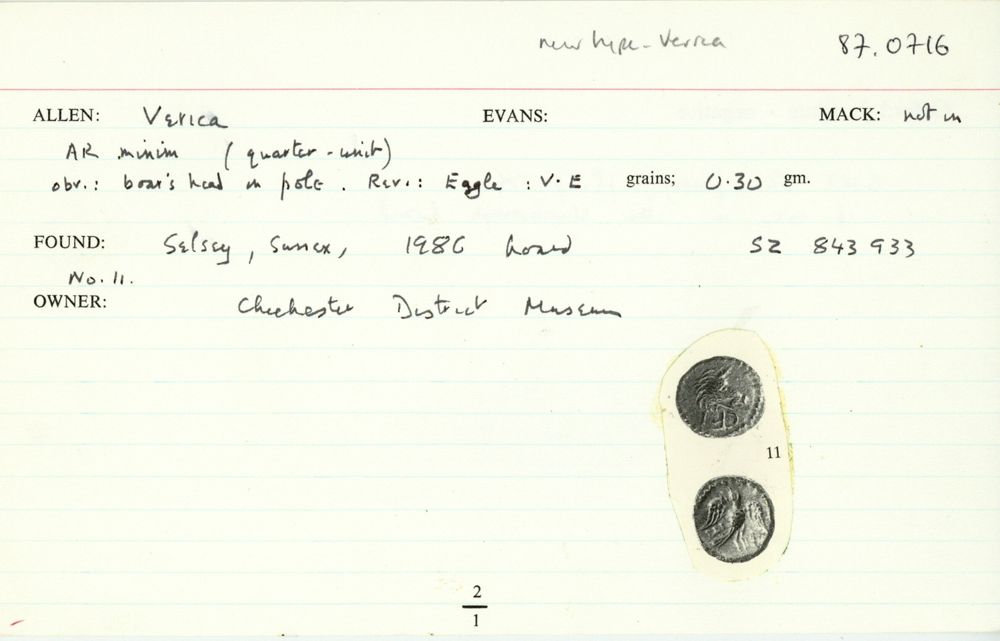 new type - Verica 87.0716
ALLEN: Verica EVANS: MACK: not in
AR minim (quarter-unit)
obv.: boar's head on pole. Rev.: Eagle : V·E grains; 0·30 gm.
FOUND: Selsey, Sussex, 1986 hoard SZ 843 933
No. 11.
OWNER: Chichester District Museum
11
2
1